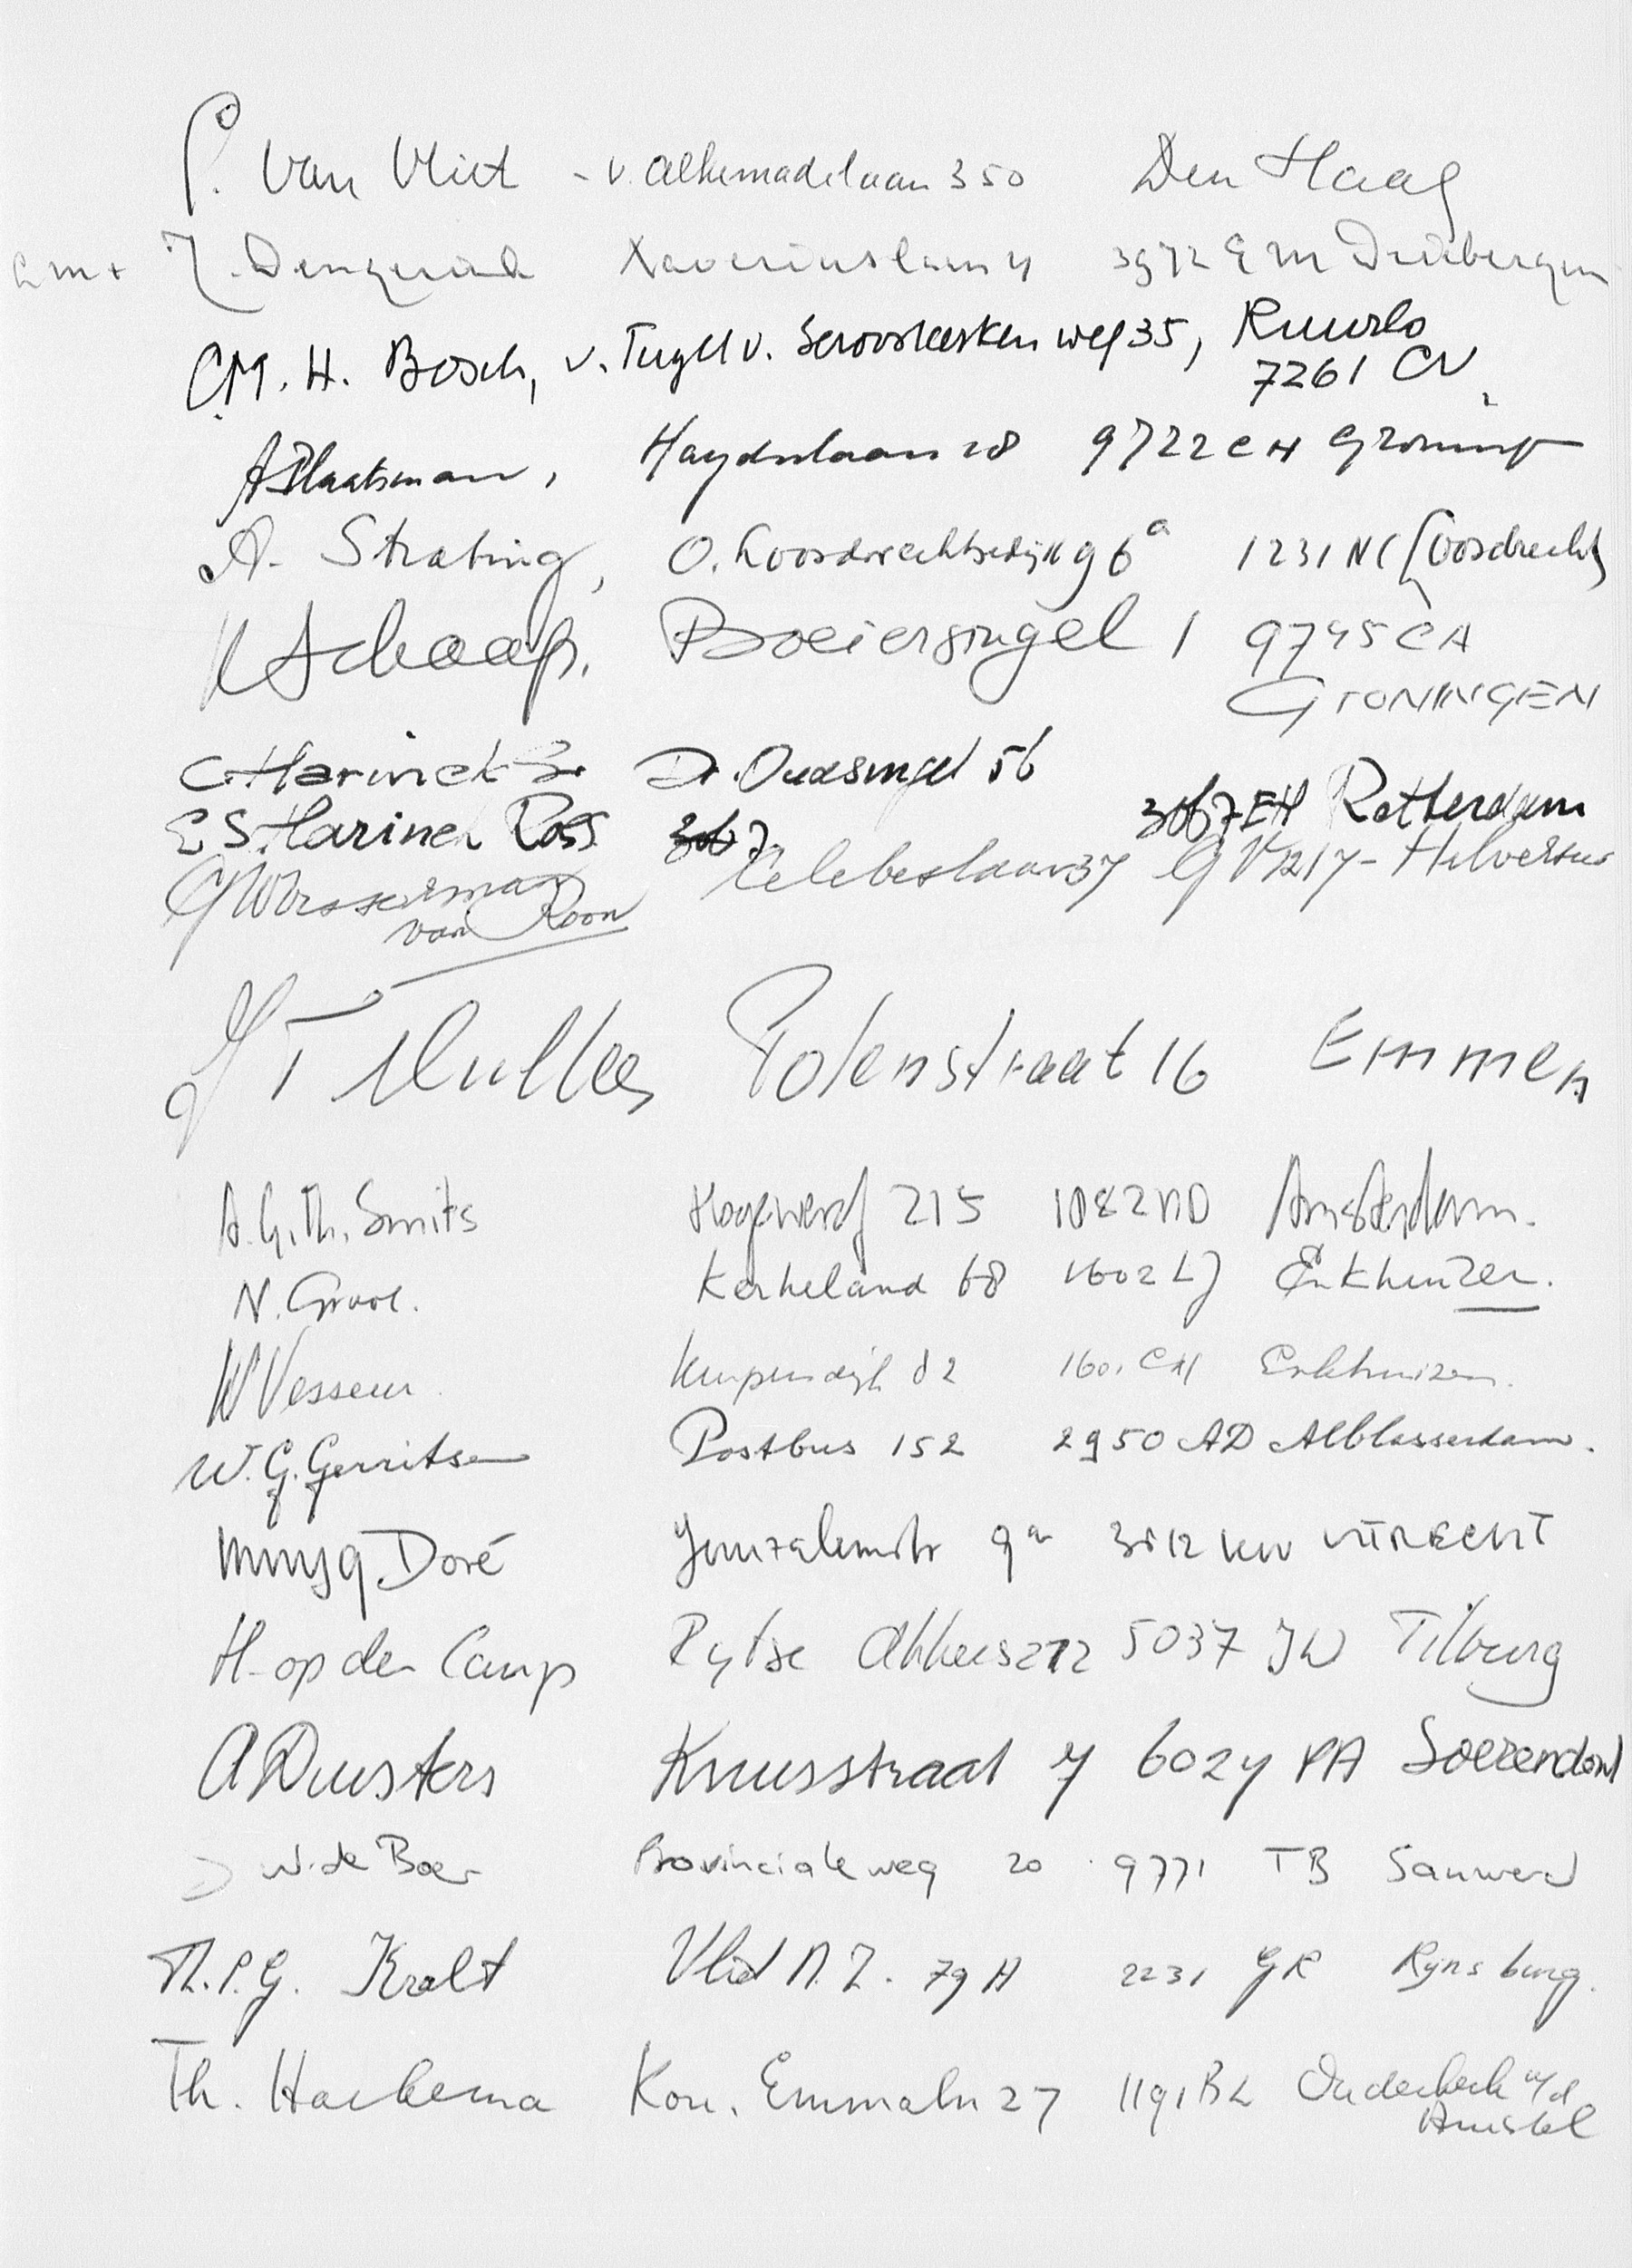 P. Van Vliet - v. Alkemadelaan 350 Den Haag
J. 3972 EM Driebergen
C.M. H. Bosch, v. Tuyll v. Serooskerken weg 35, Ruurlo
7261 CV
A Plaatsman, Haydnlaan 28 9722 CH
A. Strating, O. Loosdrechtsedijk 96a 1231 NC Loosdrecht
Schaap. Boeiersingel 1 9745 CA
GRONINGEN
C. Harinck Sr Oudsingel 56
E S. Harinck Ross 3067 EH Rotterdam
Wassermann Celebeslaan 37 GV 1217 - Hilversum
van Roon
J T Muller Polenstraat 16 Emmen
A.G.Th. Smits Hogewerf 215 1082 ND Amsterdam.
N. Groot. Kerkeland 68 1602 LJ Enkhuizen.
W Vesseur Kuipersdijk 82 1601 CH Enkhuizen.
W. G. Gerritsen Postbus 152 2950 AD Alblasserdam.
Doré Jeruzalemstr 9a 3512 KW UTRECHT
H. op den Camp 5037 JW Tilburg
A Duisters Kruisstraat 7 6027 PA Soerendonk
J W. de Boer Provincialeweg 20 9771 TB Sauwerd
Th. P. G. Kralt Vliet N.Z. 79 A 2231 GR Rijnsburg.
Th. Harkema Kon. Emmaln 27 1191 BL Ouderkerk a/d
Amstel